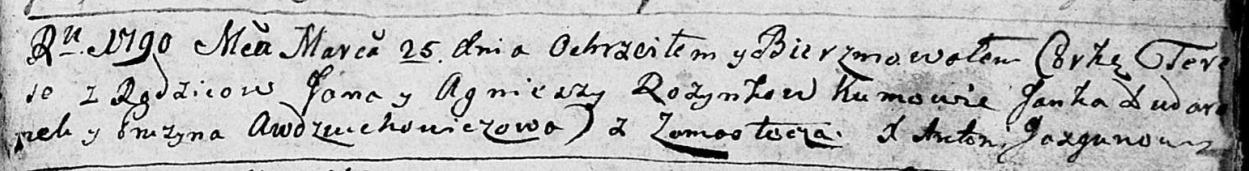 Ru. 1790 Mca Marca 25. dnia Ochrzciłem y Bierzmowałem Corkę Tere
se z Rodzicow Jana y Agnieszy Rozynkow Kumowie Janka Dudaro
nek y Awdziuchowiczowa) z Zamostocza. X Antoni Jazgunowicz